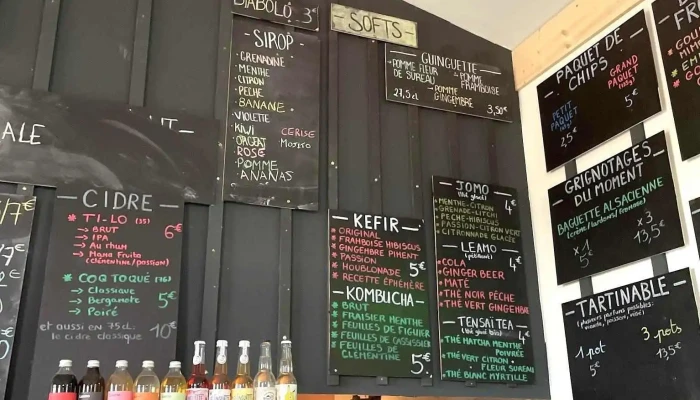 DIABOLO 3€
SOFTS
- SIROP -
GRENADINE
MENTHE
CITRON
PÊCHE
BANANE
VIOLETTE
KIWI
CERISE
ORGEAT
MOJITO
ROSE
POMME
ANANAS
GUINGUETTE
POMME FLEUR
DE SUREAU
POMME
FRAMBOISE
POMME
GINGEMBRE
27,5cl
3,50€
ALE
- CIDRE -
* TI-LO (35)
6€
→ BRUT
→ IPA
→ Au rhum
→ Mana Fruita
(clémentine/passion)
* COQ TOQUÉ (76)
→ Classique
→ Bergamote
→ Poiré
5€
et aussi en 75cl :
le cidre classique
10€
- KEFIR -
* ORIGINAL
* FRAMBOISE HIBISCUS
* GINGEMBRE PIMENT
* PASSION
* HOUBLONADE
* RECETTE ÉPHÉMÈRE
5€
- KOMBUCHA -
* BRUT
* FRAISIER MENTHE
* FEUILLES DE FIGUIER
* FEUILLES DE CASSISSIER
* FEUILLES DE
CLEMENTINE
5€
JOMO
(thé glacé)
4€
* MENTHE-CITRON
* GRENADE-LITCHI
* PECHE-HIBISCUS
* PASSION-CITRON VERT
* CITRONNADE GLACÉE
- LEAMO -
(pétillant)
4€
* COLA
* GINGER BEER
* MATÉ
* THÉ NOIR PÊCHE
* THÉ VERT GINGEMBRE
- TENSAÏ TEA -
(thé glacé bio)
4€
* THÉ HATCHA MENTHE
POIVRÉE
* THÉ VERT CITRON
FLEUR SUREAU
* THÉ BLANC MYRTILLE
PAQUET DE
CHIPS
PETIT
PAQUET
2€
GRAND
PAQUET
5€
GRIGNOTAGES
DU MOMENT
BAGUETTE ALSACIENNE
x1
5€
x3
13,5€
- TARTINABLE -
1 pot
5€
3 pots
13,5€